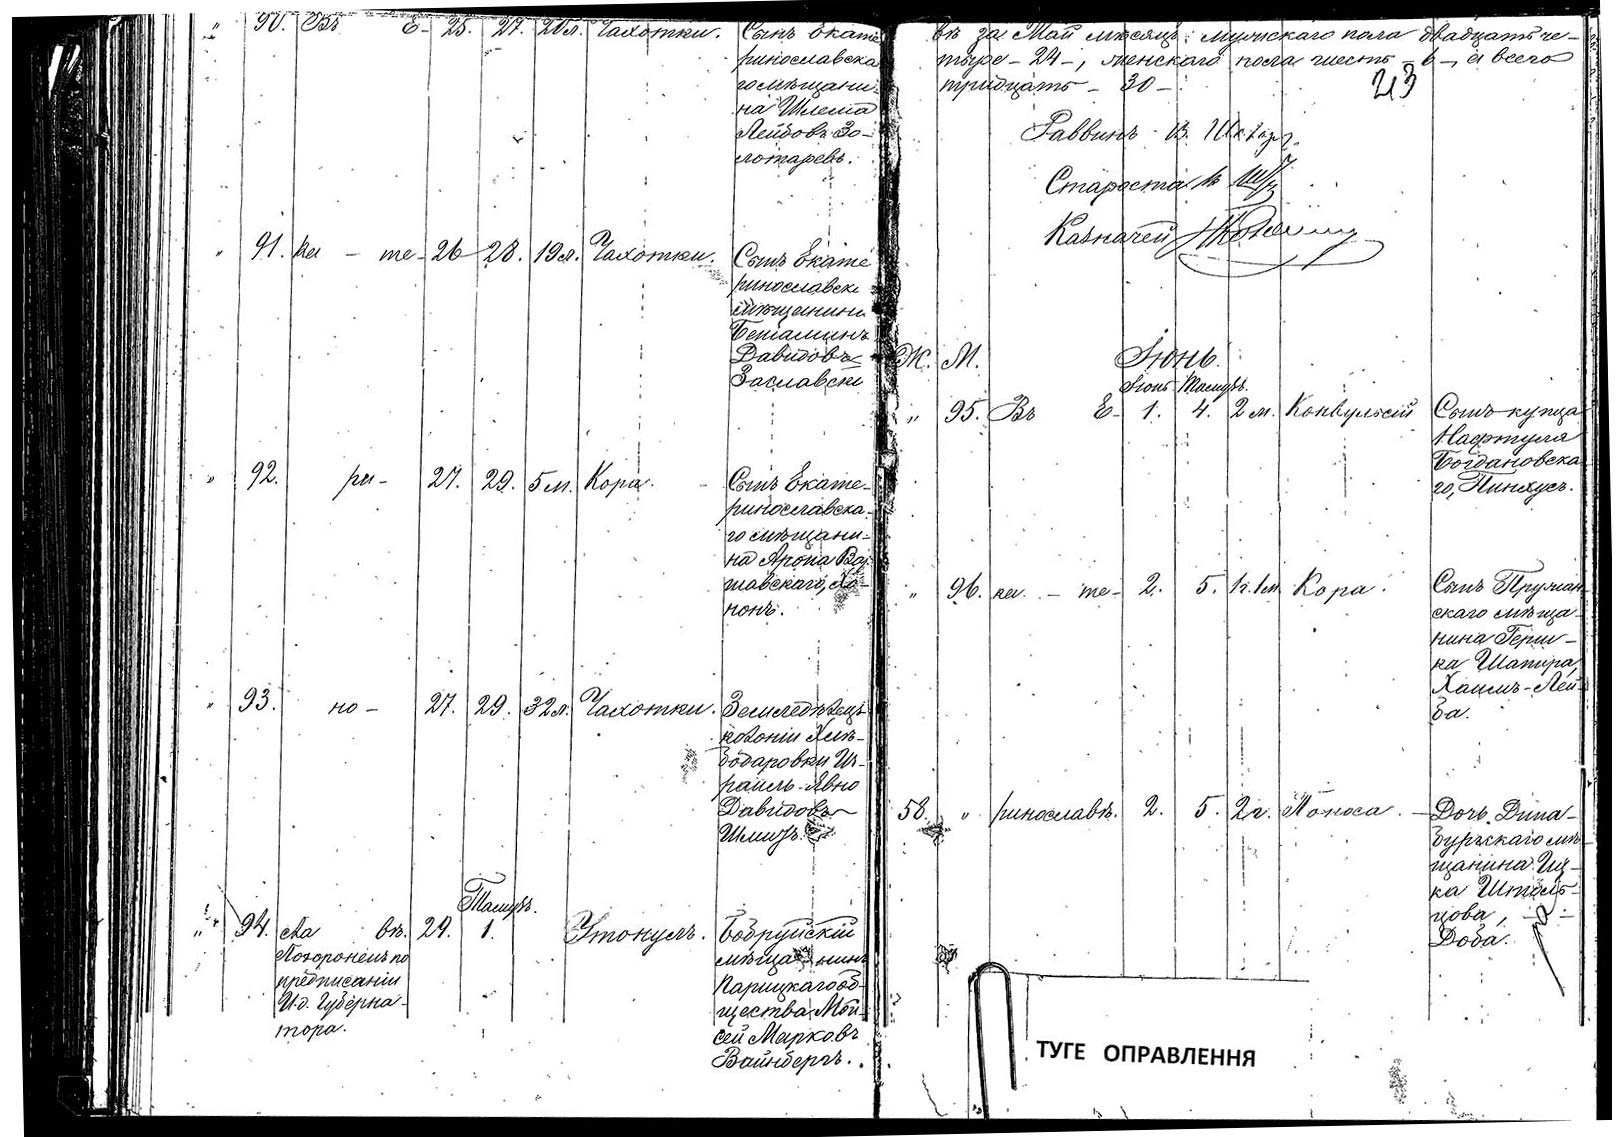 " 90. Въ Е- 25. 27. 20л. Чахотки. Сынъ Екате
ринославска
го мѣщани-
на Шлема
Лейбовъ Зо-
лотаревъ.
" 91. ка - те- 26 28. 19л. Чахотки. Сынъ Екате
ринославск
мѣщанинъ
Бениаминъ
Давидовъ
Заславскі
" 92. ри- 27. 29. 5м. Кора. Сынъ Екате-
ринославска-
го мѣщани-
на Арона Вар
шавскаго, Хо-
нонъ.
" 93. но- 27. 29. 32л. Чахотки. Земледѣлецъ
колоніи Хлѣ-
бодаровки Из-
раиль-Явно
Давидовъ
Шмитъ.
Тамузъ.
" 94. сла въ. 29. 1. Утонулъ. Бобруйскій
Похороненъ по
предписанію
И.д. Губерна-
тора.
мѣщанинъ
Паричкаго об-
щества Мой-
сей Марковъ
Вайнбергъ.
въ за Май мѣсяцъ: мужскаго пола двадцать че-
тыре - 24 -, женскаго пола шесть - 6 -, а всего
тридцать - 30 -
213
Раввинъ В. Шкляръ
Староста
Казначей
Ж. М. Іюнь.
Іюнь Тамузъ.
" 95. Въ Е- 1. 4. 2м. Конвульсій Сынъ купца
Нафтуля
Богдановска
го, Пинхусъ.
" 96. ка - те- 2. 5. 1г.1м. Кора. Сынъ Пружан
скаго мѣща-
нина Герш-
ка Шапира,
Хаимъ-Лей-
ба.
58. " ринославѣ. 2. 5. 2г. Поноса. - Дочь Дина-
бургскаго мѣ-
щанина Иц-
ка Штоль-
цова,
Доба.
ТУГЕ ОПРАВЛЕННЯ